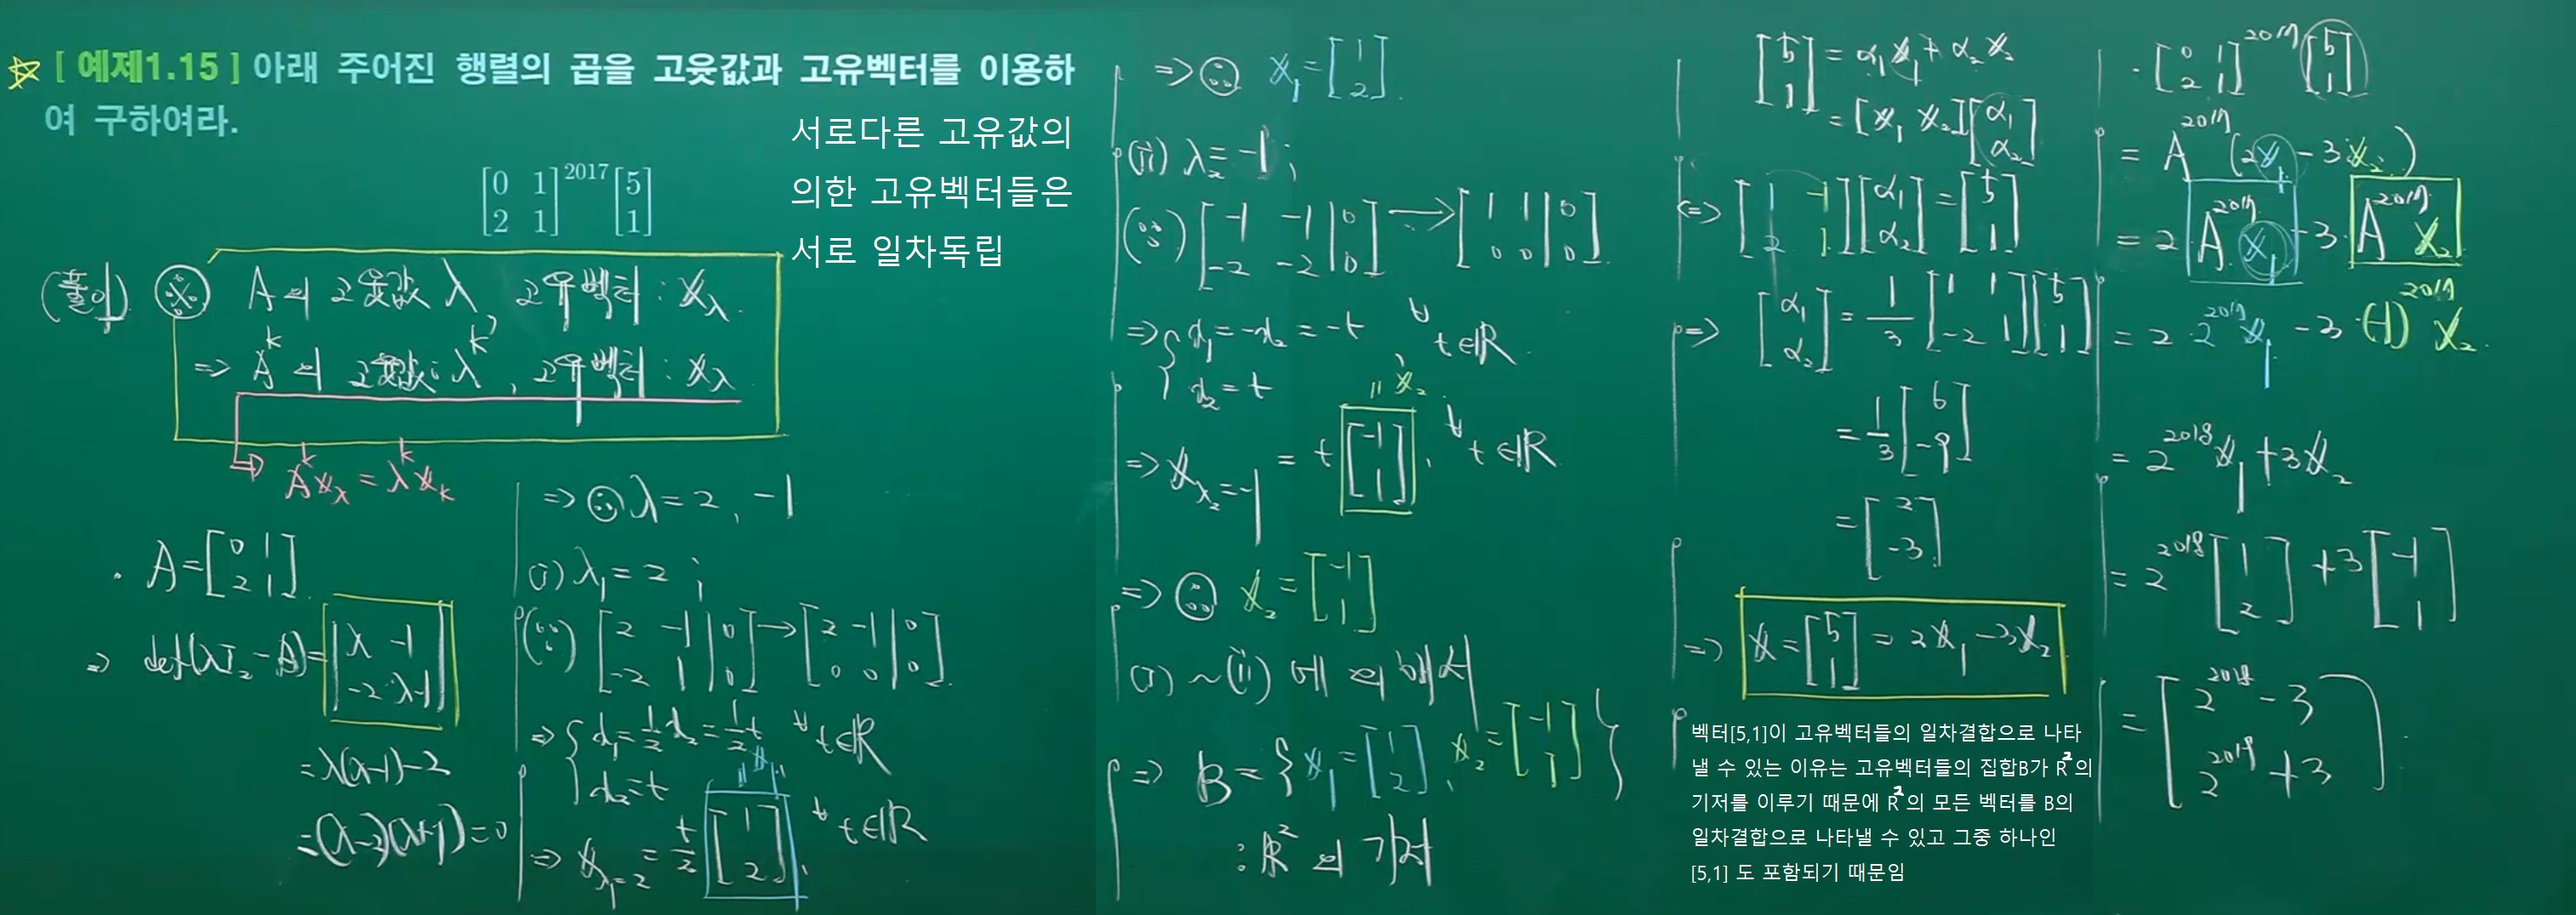 [ 예제1.15 ] 아래 주어진 행렬의 곱을 고윳값과 고유벡터를 이용하
여 구하여라.
[0 1
2 1]^2017 [5
1]
서로다른 고유값의
의한 고유벡터들은
서로 일차독립
(풀이) ※ A의 고윳값 λ, 고유벡터 : x_λ
⇒ A^k의 고윳값 : λ^k, 고유벡터 : x_λ
A^k x_λ = λ^k x_k
· A = [0 1
2 1]
⇒ det(λI₂ - A) = |λ -1
-2 λ-1|
= λ(λ-1)-2
= (λ-2)(λ+1) = 0
⇒ ∴ λ = 2, -1
(i) λ₁ = 2 ;
(∵) [2 -1 | 0
-2 1 | 0] → [2 -1 | 0
0 0 | 0]
⇒ { x₁ = 1/2 x₂ = 1/2 t ∀t∈ℝ
x₂ = t
" x₁
⇒ x_λ₁=2 = t/2 [1
2], ∀t∈ℝ
⇒ ∴ x₁ = [1
2]
(ii) λ₂ = -1 ;
(∵) [-1 -1 | 0
-2 -2 | 0] → [1 1 | 0
0 0 | 0]
⇒ { x₁ = -x₂ = -t, ∀t∈ℝ
x₂ = t
" x₂
⇒ x_λ₂=-1 = t [-1
1], ∀t∈ℝ
⇒ ∴ x₂ = [-1
1]
(i) ~ (ii) 에 의해서
⇒ B = { x₁ = [1
2], x₂ = [-1
1] }
: ℝ²의 기저
[5
1] = α₁x₁ + α₂x₂
= [x₁ x₂][α₁
α₂]
⇔ [1 -1
2 1][α₁
α₂] = [5
1]
⇒ [α₁
α₂] = 1/3 [1 1
-2 1][5
1]
= 1/3 [6
-9]
= [2
-3]
⇒ x = [5
1] = 2x₁ - 3x₂
벡터[5,1]이 고유벡터들의 일차결합으로 나타
낼 수 있는 이유는 고유벡터들의 집합B가 R²의
기저를 이루기 때문에 R²의 모든 벡터를 B의
일차결합으로 나타낼 수 있고 그중 하나인
[5,1] 도 포함되기 때문임
· [0 1
2 1]^2017 [5
1]
= A^2017 (2x₁ - 3x₂)
= 2 A^2017 x₁ - 3· A^2017 x₂
= 2·2^2017 x₁ - 3·(-1)^2017 x₂
= 2^2018 x₁ + 3x₂
= 2^2018 [1
2] + 3 [-1
1]
= [2^2018 - 3
2^2019 + 3]